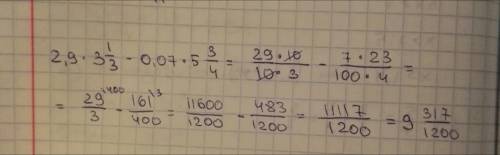 2,9 · 3 1/3 − 0,07 · 5 3/4 = (29 · 10)/(10 · 3) − (7 · 23)/(100 · 4) =
= 29/3 \400 − 161/400 \3 = 11600/1200 − 483/1200 = 11117/1200 = 9 317/1200